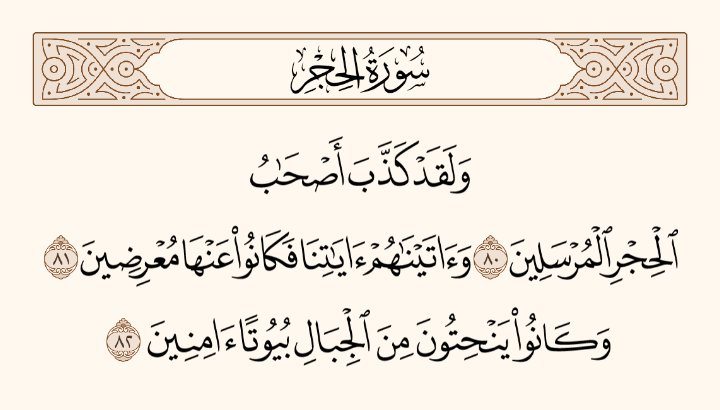 سُورَةُ الحِجْرِ
وَلَقَدْ كَذَّبَ أَصْحَٰبُ
ٱلْحِجْرِ ٱلْمُرْسَلِينَ ٨٠ وَءَاتَيْنَٰهُمْ ءَايَٰتِنَا فَكَانُوا۟ عَنْهَا مُعْرِضِينَ ٨١
وَكَانُوا۟ يَنْحِتُونَ مِنَ ٱلْجِبَالِ بُيُوتًا ءَامِنِينَ ٨٢